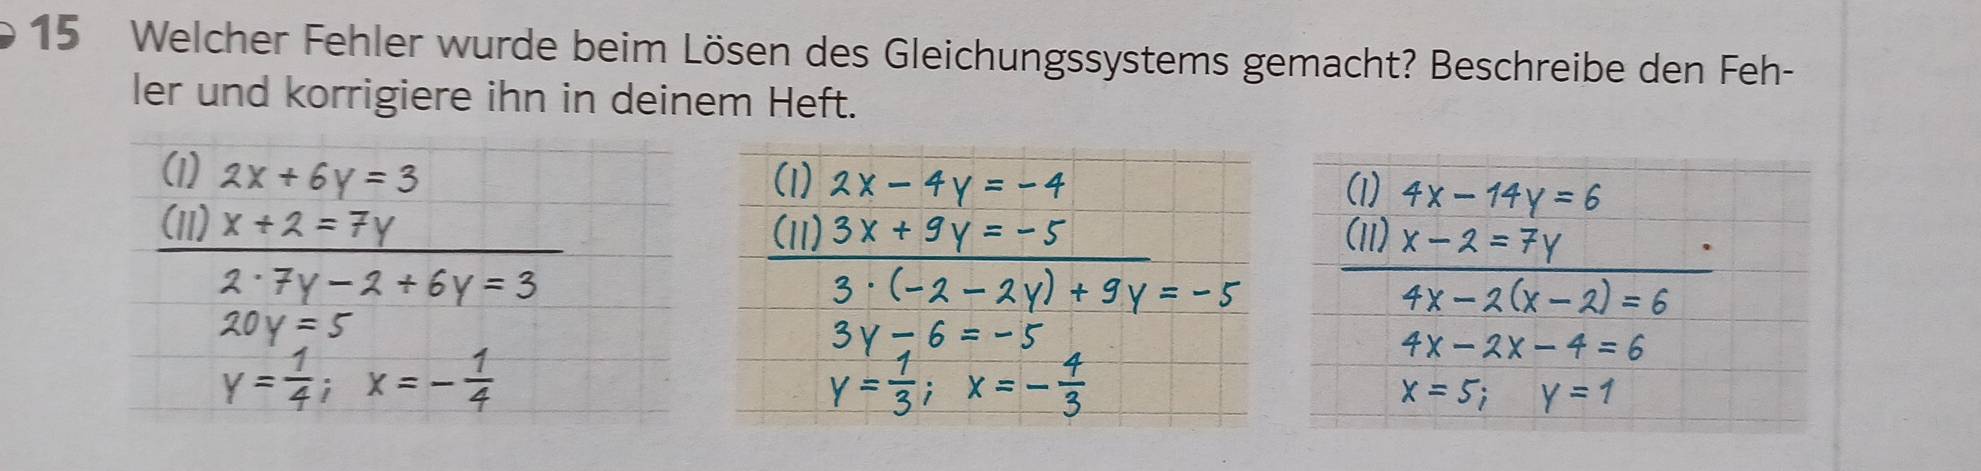 15 Welcher Fehler wurde beim Lösen des Gleichungssystems gemacht? Beschreibe den Feh-
ler und korrigiere ihn in deinem Heft.
(I) 2x + 6y = 3
(II) x + 2 = 7y
2 · 7y - 2 + 6y = 3
20y = 5
y = 1/4; x = - 1/4
(I) 2x - 4y = -4
(II) 3x + 9y = -5
3 · (-2 - 2y) + 9y = -5
3y - 6 = -5
y = 1/3; x = - 4/3
(I) 4x - 14y = 6
(II) x - 2 = 7y
4x - 2(x - 2) = 6
4x - 2x - 4 = 6
x = 5; y = 1